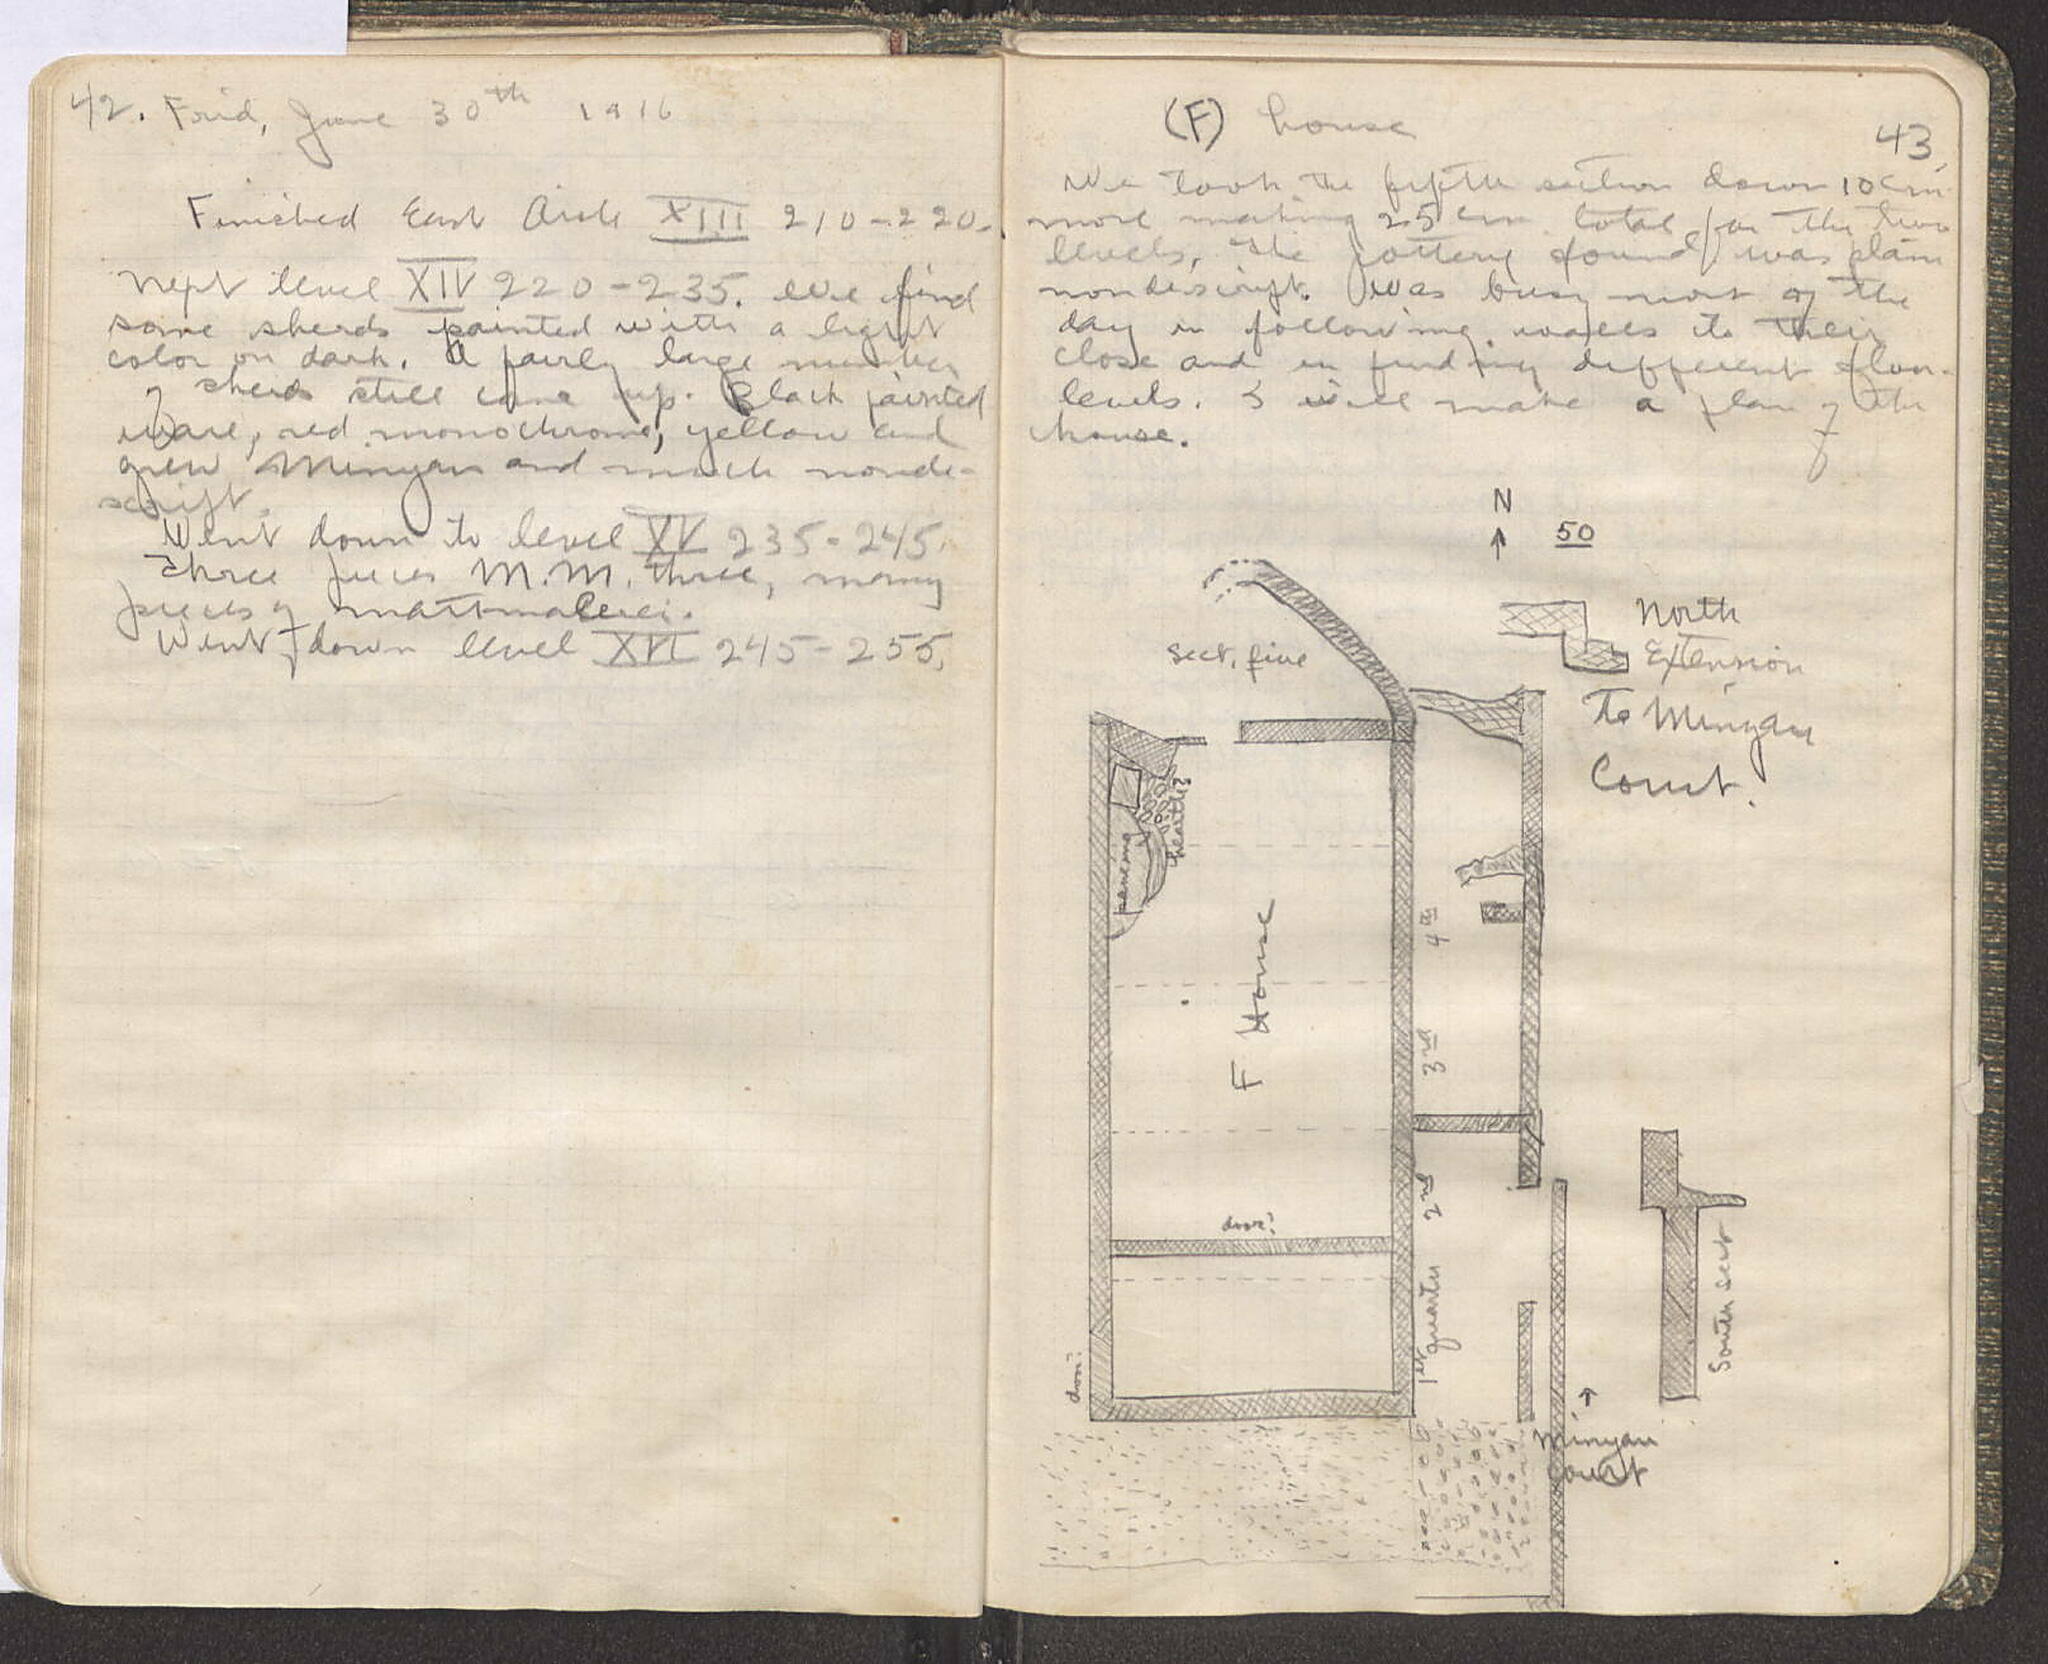 42. Frid, June 30th 1916
Finished East Aisle XIII 210-220.
Next level XIV 220-235. We find
some sherds painted with a light
color on dark. A fairly large number
of sherds still came up. Black painted
ware, red monochrome, yellow and
grey Minyan and much nonde-
script.
Went down to level XV 235-245.
Three pieces M.M. three, many
pieces of mattmalerei.
Went down level XVI 245-255.
(F) house
43.
We took the fifth section down 10 cm
more making 25 cm total for the two
levels, the pottery found was plain
nondescript. Was busy most of the
day in following walls to their
close and in finding different floor
levels. I will make a plan of the
house.
N
50
North
Extension
To Minyan
Court.
Sect. five
hearth?
paving
F House
4th
3rd
2nd
1st quarter
door?
door?
South sect
Minyan
Court